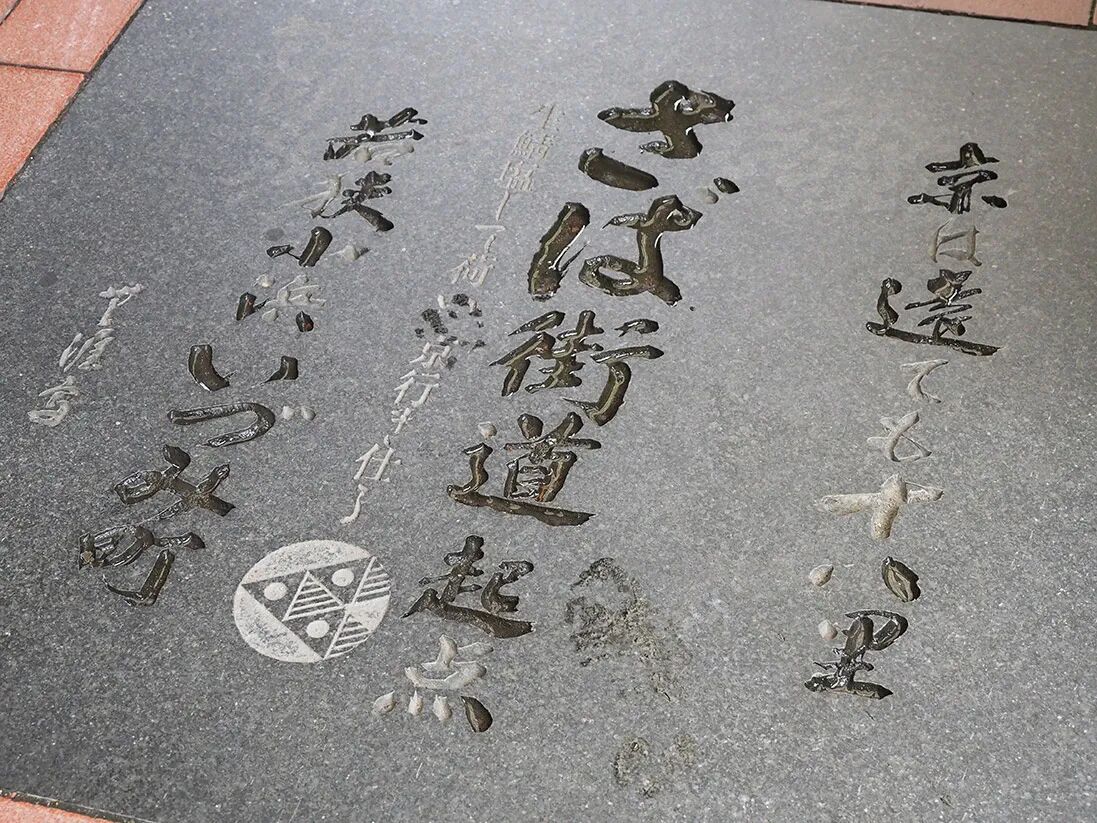 京は遠ても十八里
さば街道起点
生鯖塩して荷 京行き仕る
若狭小浜いづみ町